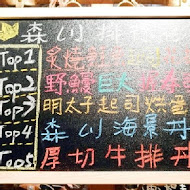 森川排
Top1 炙燒
Top2 野鰻巨大
Top3 明太子起司烘蛋
Top4 森川海景丼
Top5 厚切牛排丼